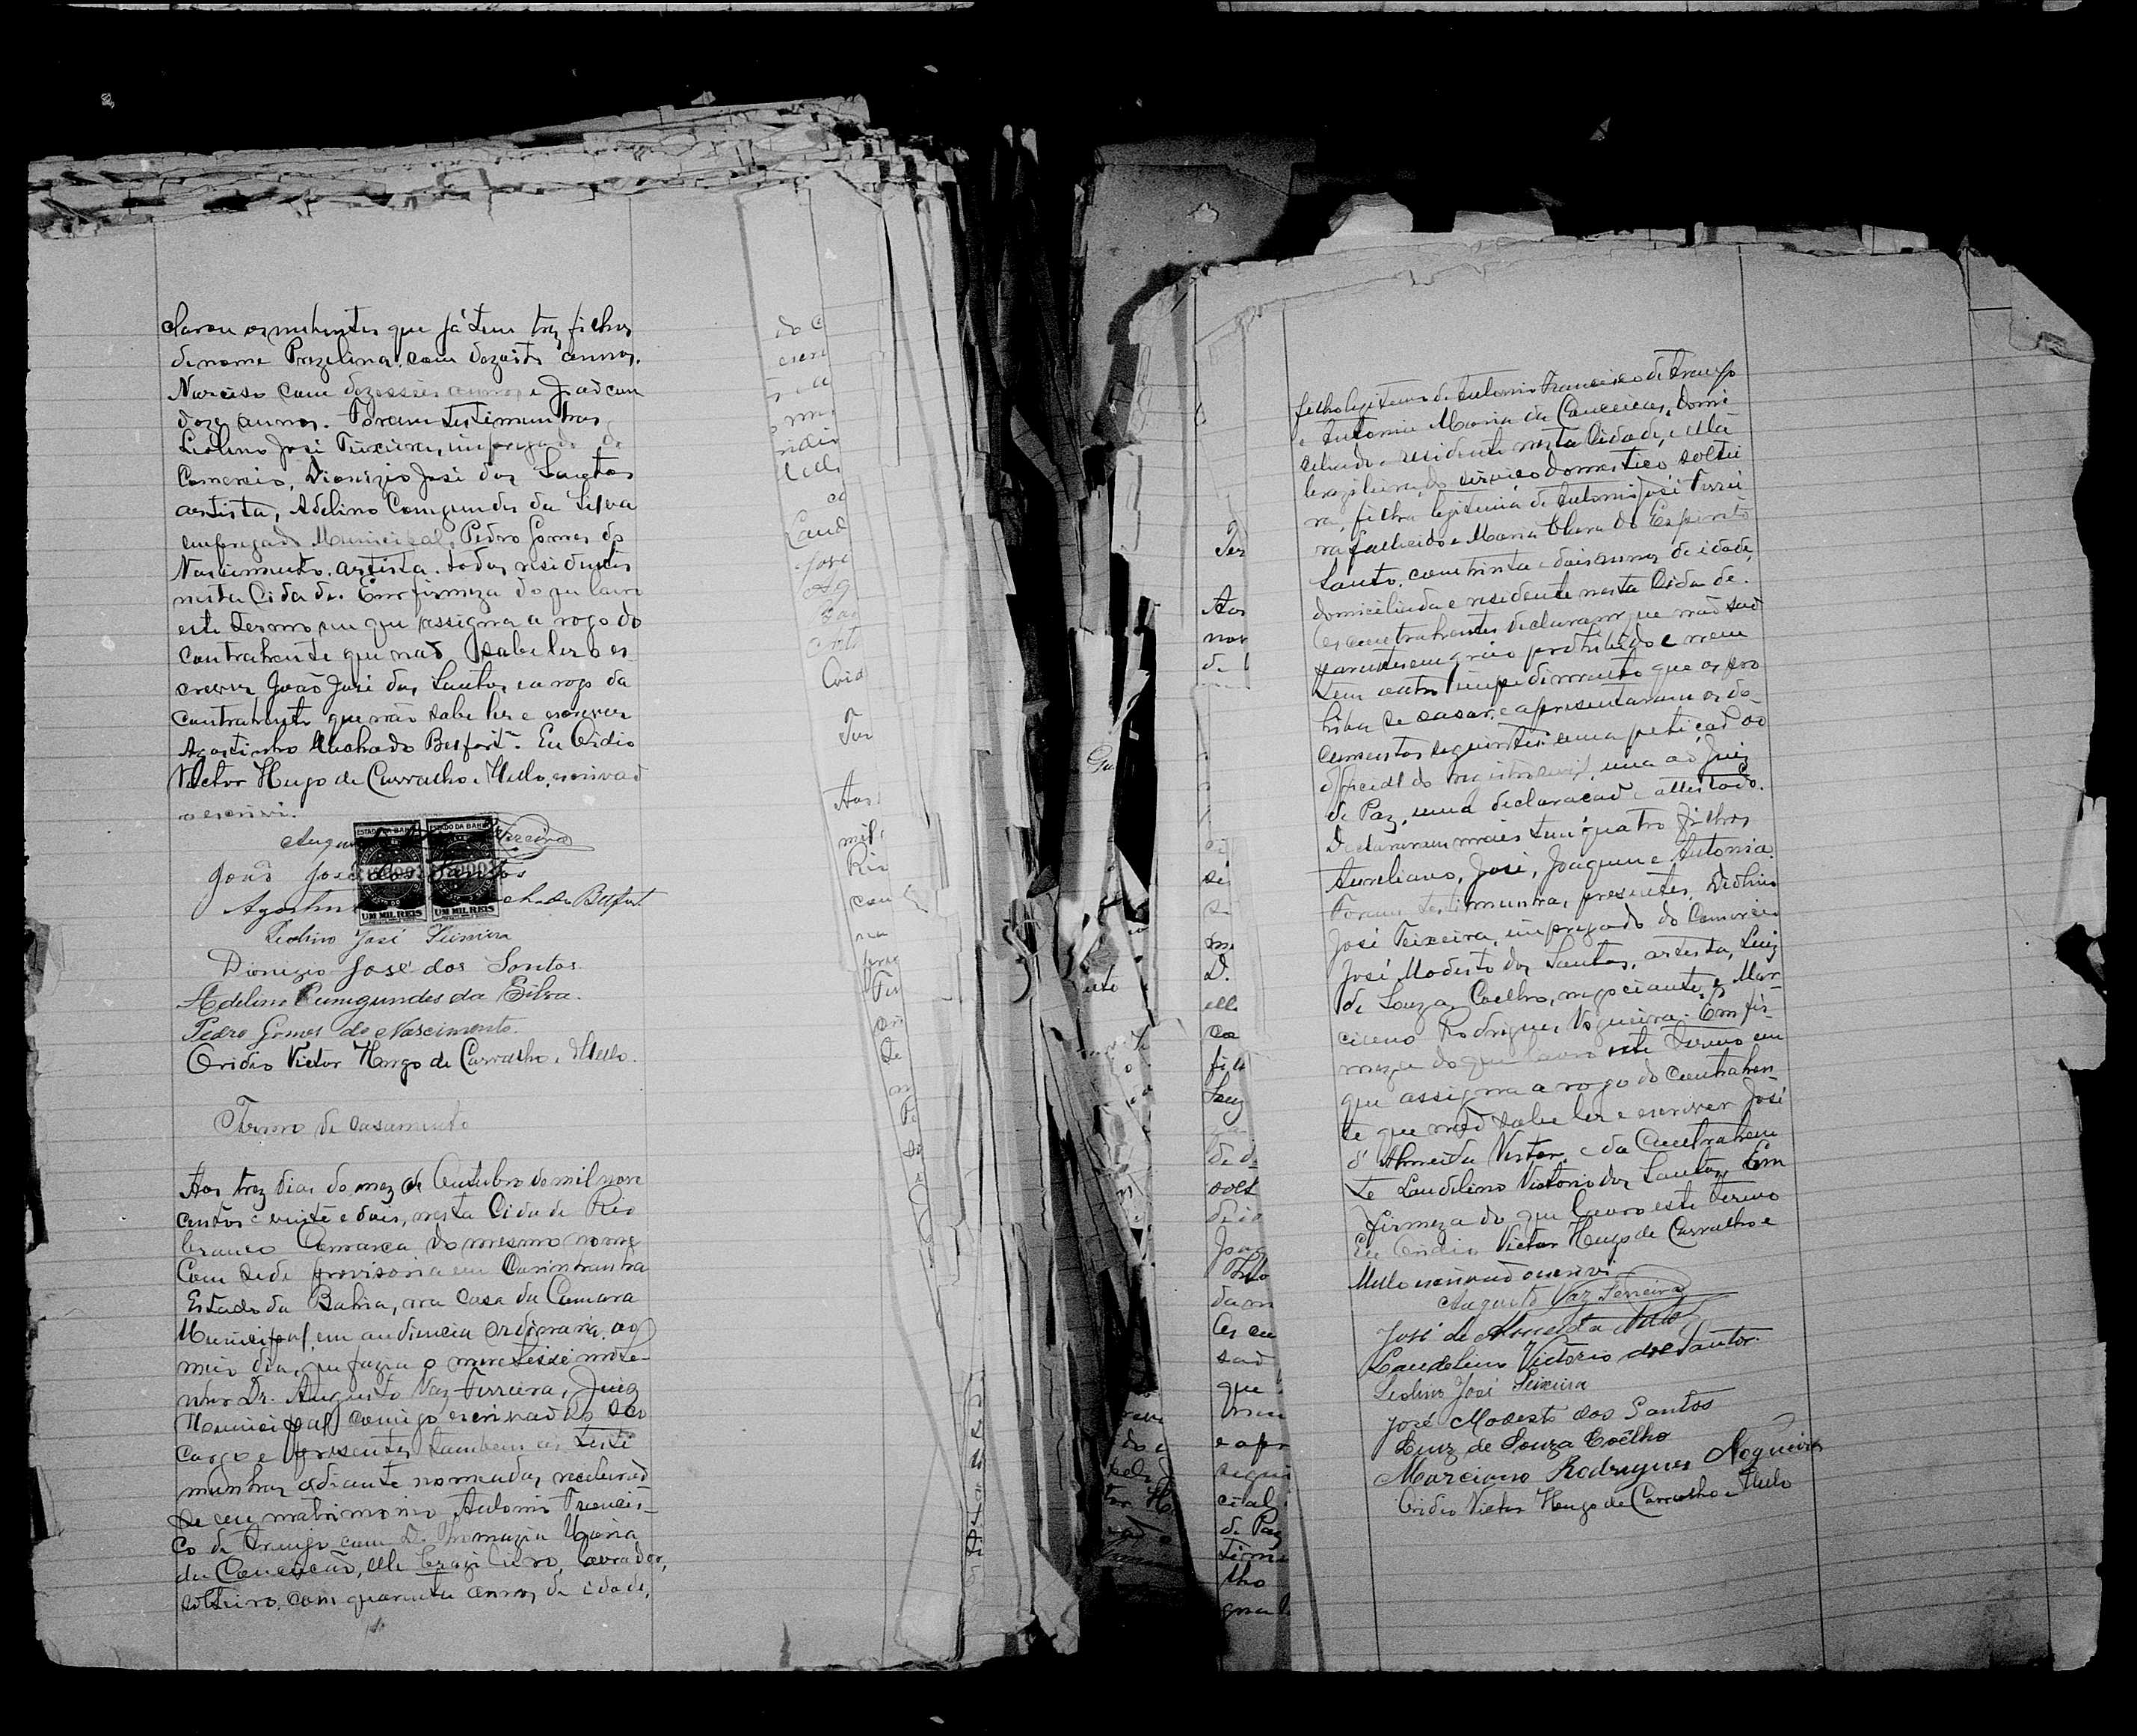 clarou os nubentes que já tem trez filhos
de nome Prozelina, com dezoito annos.
Narciso com dezesseis annos e João com
doze annos. Foram testimunhas
Liolino José Teixeira, impregado do
Comercio, Dionizio José dos Santos
artista, Adelino Comgundes da Silva
empregado Municipal, Pedro Gomes do
Nascimento, artista, todos residentes
nesta Cidade. Em firmeza do que lavro
este termo em que assigna a rogo do
contrahente que não sabe ler e es
crever João José dos Santos e a rogo da
contrahente que não sabe ler e escrever
Agostinho Machado Besfort. Eu Ovidio
Victor Hugo de Carvalho e Mello, escrivão
o escrivi.
ESTADO DA BAHIA ESTADO DA BAHIA
Augusto Ferreira
João José dos Santos
Agostinho Machado Besfort
UM MIL REIS UM MIL REIS
Liolino José Teixeira
Dionizio José dos Santos
Adelino Cunegundes da Silva.
Pedro Gomes do Nascimento.
Ovidio Victor Hugo de Carvalho e Mello.
Termo de casamento
Aos trez dias do mez de Outubro de mil nove
centos e vinte e dois, nesta Cidade Rio
branco Comarca do mesmo nome
Com sede provisoria em Carinhanha
Estado da Bahia, na Casa da Camara
Municipal, em audiencia ordinaria, ao
meio dia, que fazia o meretissimo se
nhor Dr. Augusto Vaz Ferreira, Juiz
Municipal comigo escrivão do seo
cargo e presentes tambem as testi
munhas adiante nomeadas, receberão
se em matrimonio Antonio Francis-
co de Araujo com D. Thomazia Maria
da Conceicão, elle brazileiro, lavrador,
solteiro, com quarenta annos de idade,
filho legitimo de Antonio Francisco de Araujo
e Antonia Maria da Conceicão, domi
ciliado e residente nesta Cidade, e ella
brazileira, do serviço domestico, soltei
ra, filha legitima de Antonio José Ferrei
ra fallecido e Maria Clara do Espirito
Santo, com trinta e dois annos de idade,
domiciliada e residente nesta Cidade.
Os contrahentes declaram que não são
parentes em gráo prohibido e nem
tem outro impedimento que os pro
hiba de casar, e apresentaram os do
cumentos seguintes: uma petição ao
official do registro civil, uma ao Juiz
de Paz, uma declaracão e attestado.
Declararam mais tem quatro filhos
Aureliano, José, Joaquim e Antonia.
Foram testimunhas presentes, Liolino
José Teixeira, impregado do Comercio
José Modesto dos Santos, artista, Luiz
de Souza Coelho, negociante, e Mar
ciano Rodrigues Nogueira. Em fir-
meza do que lavro este termo em
que assigna a rogo do contrahen
te que não sabe ler e escrever José
d'Almeida e da Contrahen
te Laudelino Victorio dos Santos. Em
firmeza do que lavro este termo
Eu Ovidio Victor Hugo de Carvalho e
Mello escrivão o escrivi
Augusto Vaz Ferreira
José de Almeida
Laudelino Victorio dos Santos.
Liolino José Teixeira
José Modesto dos Santos
Luiz de Souza Coêlho
Marciano Rodrigues Nogueira
Ovidio Victor Hugo de Carvalho e Mello